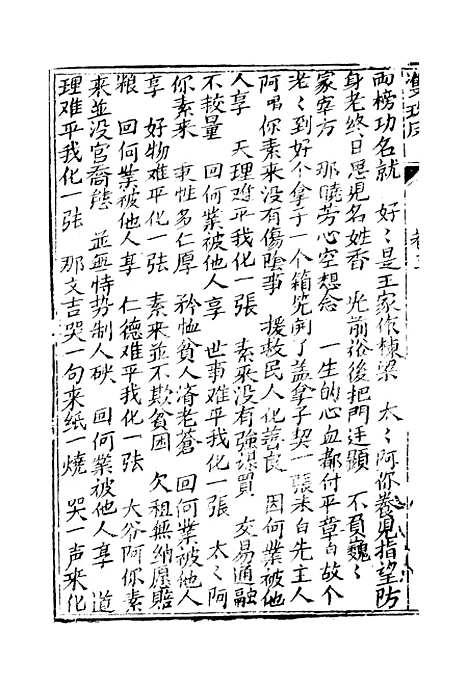 両榜功名就　好〻是王家作棟梁　太〻阿你養児指望防
身老終日思児名姓香　光前裕後把門廷顕　不負巍〻
家寒方　那暁芳心空想念　一生的心血都付平章自故个
老〻到好个拿子一个箱篼開了盖拿子契一張未白先主人
阿唱你素来没有傷陰事　援救民人化善良　因何業被他
人享　天理难平我化一張　素来没有強謀買　交易通融
不較量　回何業被他人享　世事难平我化一張　太〻阿
你素来　秉性多仁厚　矜恤貧人済老蒼　回何業被他人
享　好物难平化一張　素来並不欺貧困　欠租無納原賠
粮　回何業被他人享　仁德难平我化一張　大爷阿你素
来並没官裔態　並無恃势制人硤　回何業被他人享　道
理难平我化一張　那文吉哭一句来紙一燒　哭一声来化